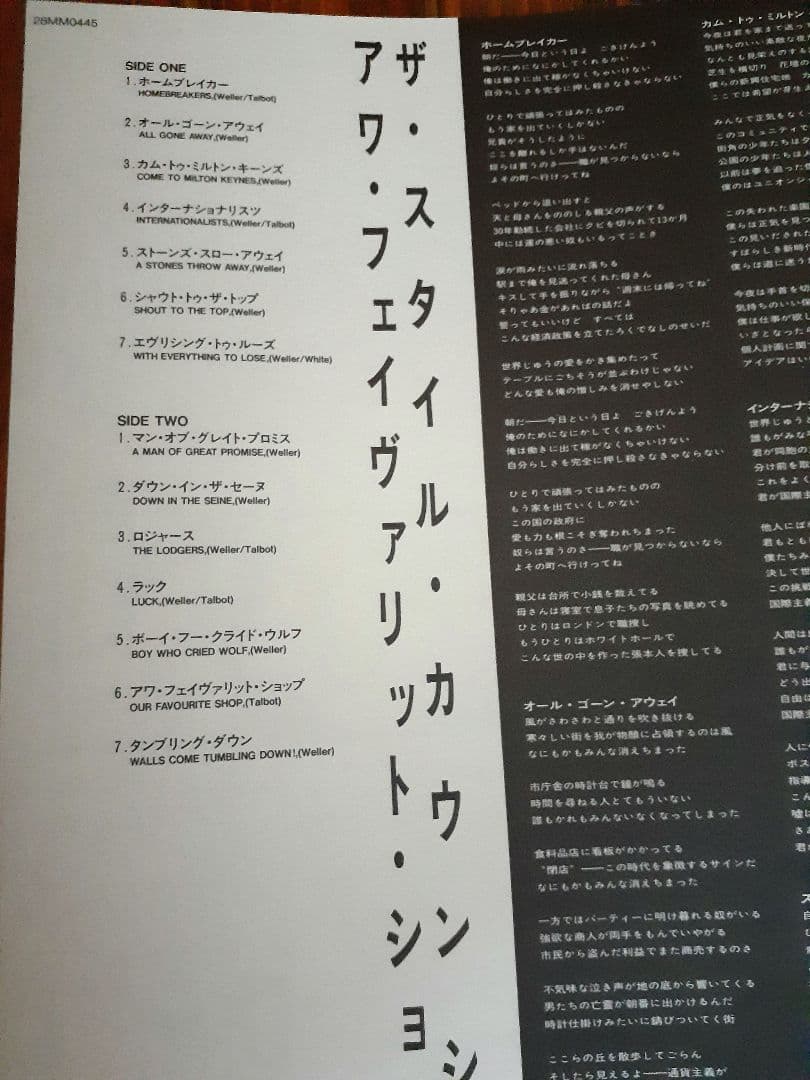 28MM0445
SIDE ONE
1.ホームブレイカー
HOMEBREAKERS,(Weller/Talbot)
2.オール・ゴーン・アウェイ
ALL GONE AWAY,(Weller)
3.カム・トゥ・ミルトン・キーンズ
COME TO MILTON KEYNES,(Weller)
4.インターナショナリスツ
INTERNATIONALISTS,(Weller/Talbot)
5.ストーンズ・スロー・アウェイ
A STONES THROW AWAY,(Weller)
6.シャウト・トゥ・ザ・トップ
SHOUT TO THE TOP,(Weller)
7.エヴリシング・トゥ・ルーズ
WITH EVERYTHING TO LOSE,(Weller/White)
SIDE TWO
1.マン・オブ・グレイト・プロミス
A MAN OF GREAT PROMISE,(Weller)
2.ダウン・イン・ザ・セーヌ
DOWN IN THE SEINE,(Weller)
3.ロジャース
THE LODGERS,(Weller/Talbot)
4.ラック
LUCK,(Weller/Talbot)
5.ボーイ・フー・クライド・ウルフ
BOY WHO CRIED WOLF,(Weller)
6.アワ・フェイヴァリット・ショップ
OUR FAVOURITE SHOP,(Talbot)
7.タンブリング・ダウン
WALLS COME TUMBLING DOWN!,(Weller)
ザ・スタイル・カウンシ
アワ・フェイヴァリット・ショ
ホームブレイカー
朝だ――今日という日よ ごきげんよう
俺のためになにかしてくれるかい
俺は働きに出て稼がなくちゃいけない
自分らしさを完全に押し殺さなきゃならない
ひとりで頑張ってはみたものの
もう家を出ていくしかない
兄貴がそうしたように
ここを離れるしか手はないんだ
奴らは言うのさ――職が見つからないなら
よその町へ行けってね
ベッドから這い出すと
天と母さんをののしる親父の声がする
30年勤続した会社にクビを切られて13か月
中には運の悪い奴もいるってことさ
涙が雨みたいに流れ落ちる
駅まで俺を見送ってくれた母さん
キスして手を振りながら“週末には帰ってね”
そりゃお金があればの話だよ
誓ってもいいけど すべては
こんな経済政策を立てたろくでなしのせいだ
世界じゅうの愛をかき集めたって
テーブルにごちそうが並ぶわけじゃない
どんな愛も俺の憎しみを消せやしない
朝だ――今日という日よ ごきげんよう
俺のためになにかしてくれるかい
俺は働きに出て稼がなくちゃいけない
自分らしさを完全に押し殺さなきゃならない
ひとりで頑張ってはみたものの
もう家を出ていくしかない
この国の政府に
愛も力も根こそぎ奪われちまった
奴らは言うのさ――職が見つからないなら
よその町へ行けってね
親父は台所で小銭を数えてる
母さんは寝室で息子たちの写真を眺めてる
ひとりはロンドンで職捜し
もうひとりはホワイトホールで
こんな世の中を作った張本人を捜してる
オール・ゴーン・アウェイ
風がさわさわと通りを吹き抜ける
寒々しい街を我が物顔に占領するのは風
なにもかもみんな消えちまった
市庁舎の時計台で鐘が鳴る
時間を尋ねる人とてもういない
誰もかれもみんないなくなってしまった
食料品店に看板がかかってる
“閉店”――この時代を象徴するサインだ
なにもかもみんな消えちまった
一方ではパーティーに明け暮れる奴がいる
強欲な商人が両手をもんでいやがる
市民から盗んだ利益でまた商売するのさ
不気味な泣き声が地の底から響いてくる
男たちの亡霊が朝番に出かけるんだ
時計仕掛けみたいに錆びついてく街
ここらの丘を散歩してごらん
そしたら見えるよ――通貨主義が
カム・トゥ・ミルトン